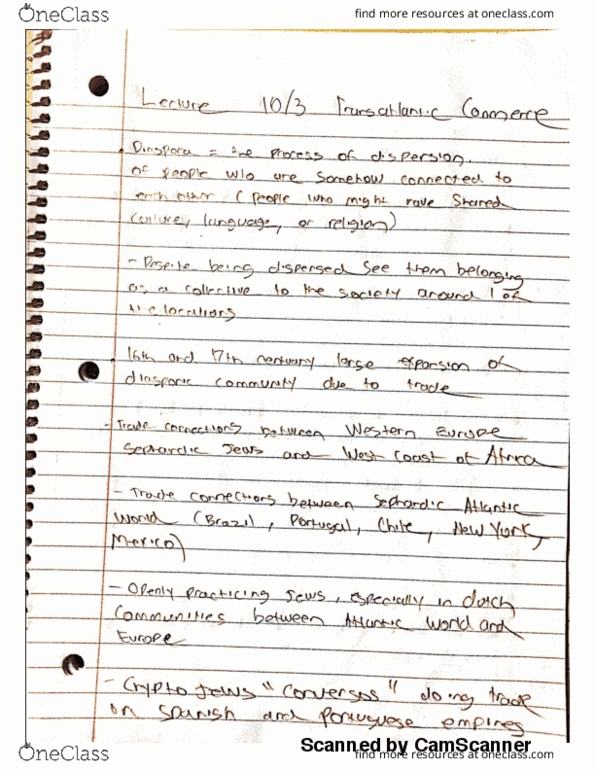 OneClass
find more resources at oneclass.com
Lecture 10/3 Transatlantic Commerce
Diaspora = the process of dispersion
of people who are somehow connected to
each other (people who might have shared
culture, language, or religion)
- Despite being dispersed see them belonging
as a collective to the society around 1 of
the locations
16th and 17th century large expansion of
diasporic community due to trade
- Trade connections between Western Europe
Sephardic Jews and West Coast of Africa
- Trade connections between Sephardic Atlantic
World (Brazil, Portugal, Chile, New York,
Mexico)
- Openly practicing Jews, especially in dutch
Communities between Atlantic World and
Europe
- Crypto Jews "Conversos" doing trade
in Spanish and Portuguese empires
Scanned by CamScanner
OneClass
find more resources at oneclass.com